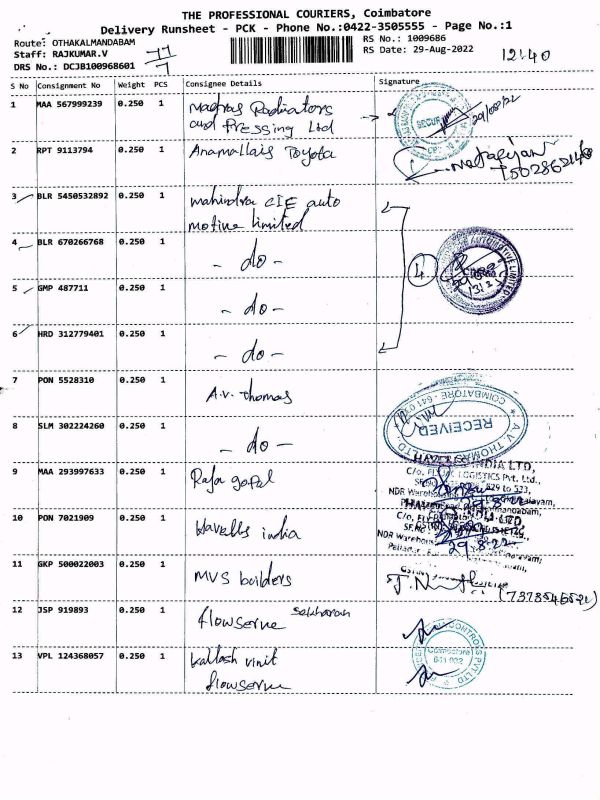 THE PROFESSIONAL COURIERS, Coimbatore
Delivery Runsheet - PCK - Phone No.:0422-3505555 - Page No.:1
Route: OTHAKALMANDABAM RS No.: 1009686
Staff: RAJKUMAR.V RS Date: 29-Aug-2022 12:40
DRS No.: DCJB100968601
S No Consignment No Weight PCS Consignee Details Signature
1 MAA 567999239 0.250 1 Madras Radiators
and Pressing Ltd 29/08/22
2 RPT 9113794 0.250 1 Anamallais Toyota
3 BLR 5450532892 0.250 1 Mahindra CIE auto
motive limited
4 BLR 670266768 0.250 1 - do - 4
5 GMP 487711 0.250 1 - do -
6 HRD 312779401 0.250 1 - do -
7 PON 5528310 0.250 1 A.V. Thomas
COIMBATORE - 641
RECEIVED
A.V. THOMAS
8 SLM 302224260 0.250 1 - do -
9 MAA 293997633 0.250 1 Raja gopal
INDIA LTD,
LOGISTICS Pvt. Ltd.,
529 to 533,
NDR Warehou
10 PON 7021909 0.250 1 Havells india
NDR Warehou
29.8.22
11 GKP 500022003 0.250 1 MVS builders
12 JSP 919893 0.250 1 flowserve Sekharan
13 VPL 124368057 0.250 1 kailash vinit
flowserve
CONTROLS PVT LTD
Coimbatore